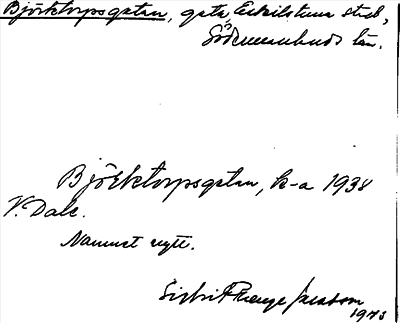 Björktorpsgatan, gata, Eskilstuna stad,
Södermanlands län.
Björktorpsgatan, k-a 1938
V. Dale.
Namnet nytt.
Jacobson
1973